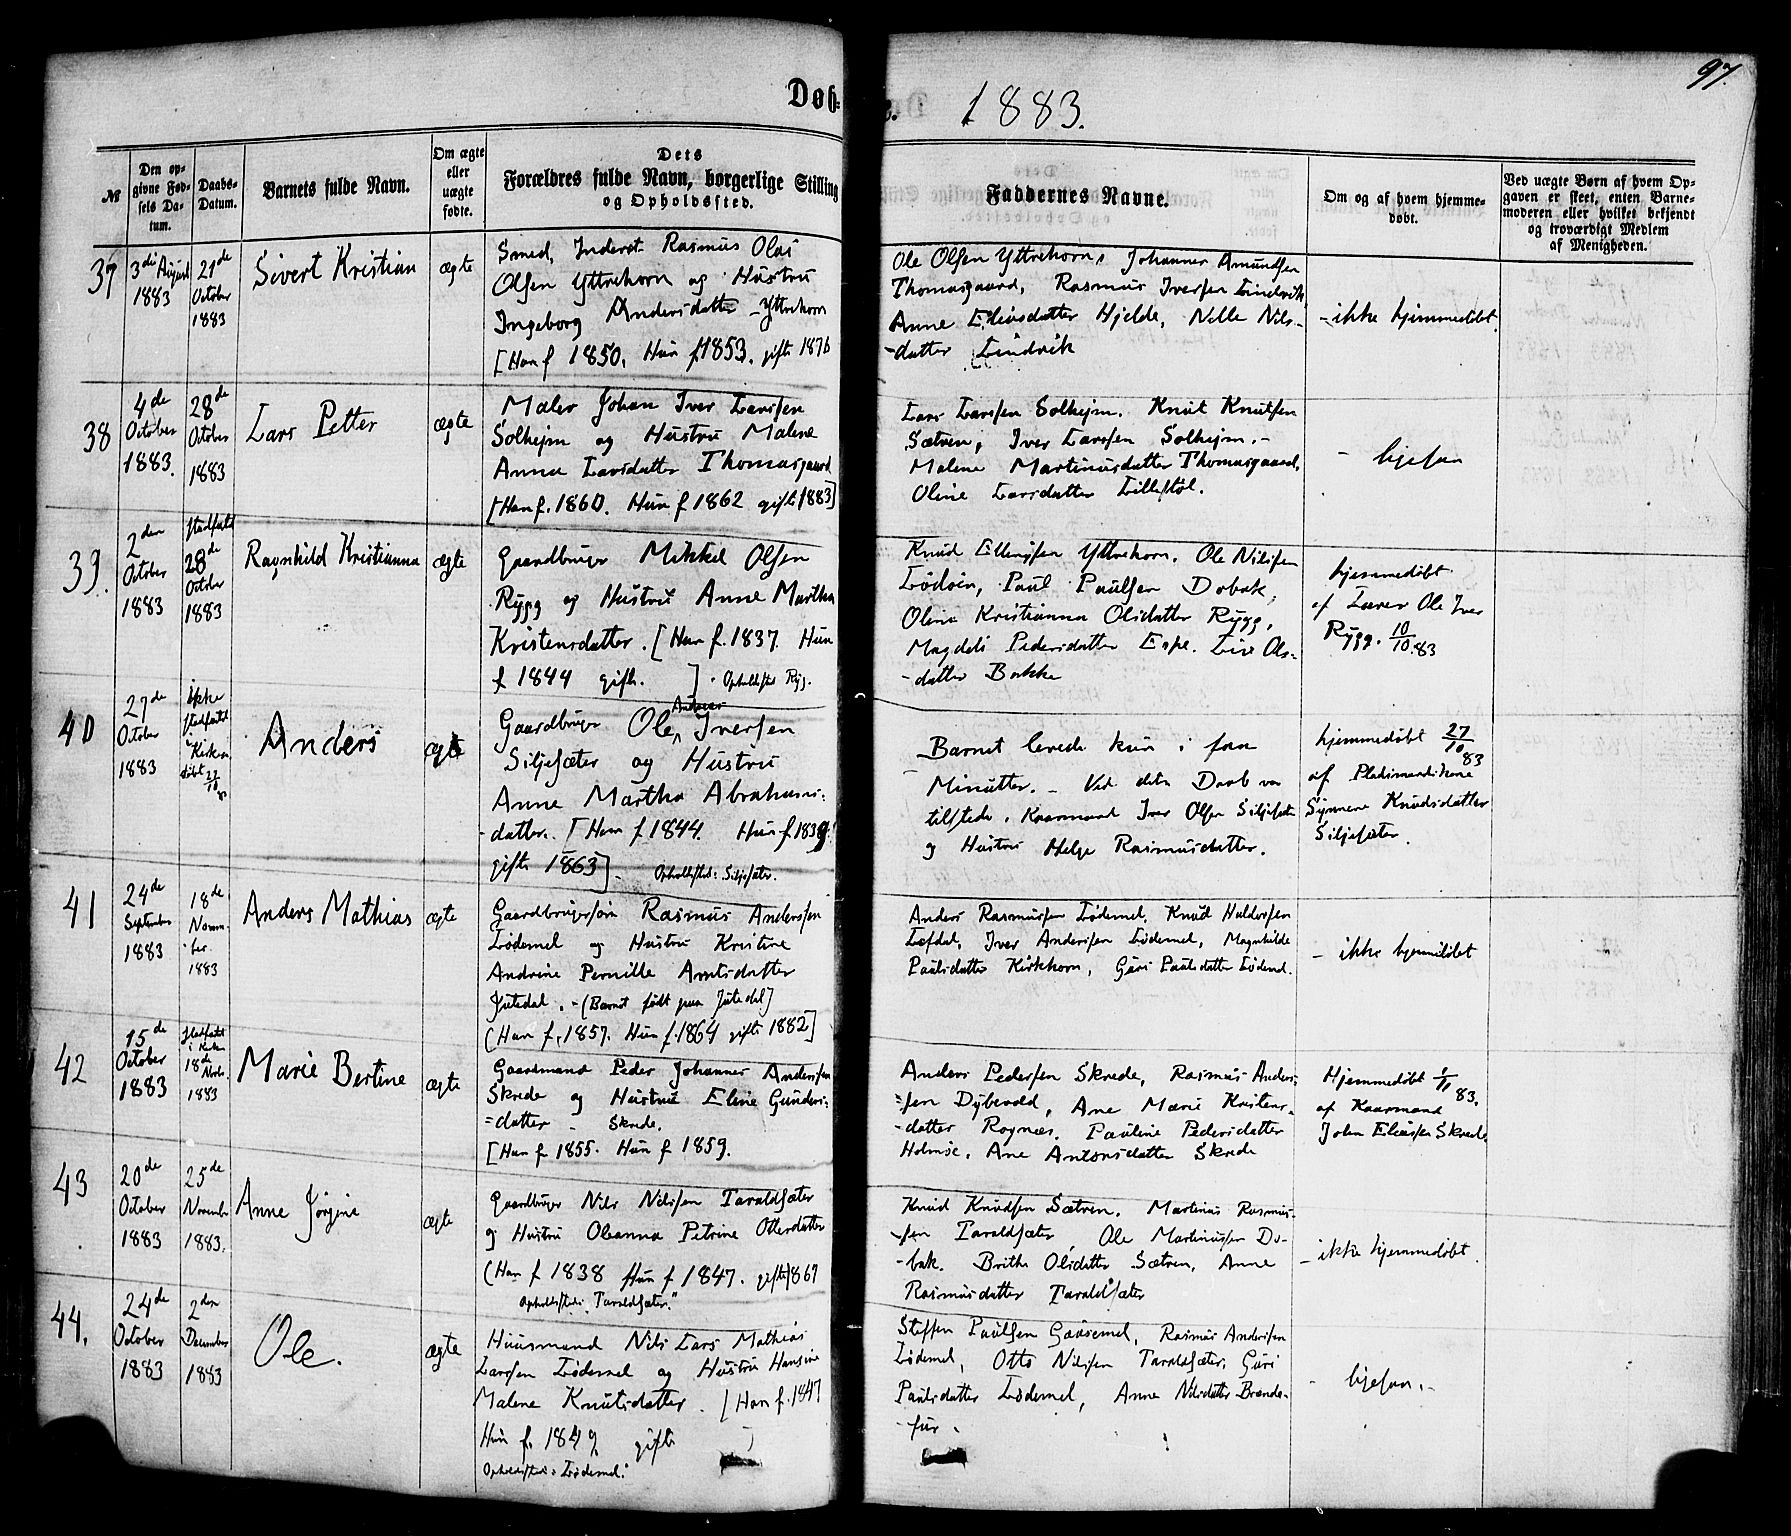 97.
Døb-
1883.
№
Den op-
givne Fød-
sels Da-
tum.
Daabs-
Datum.
Barnets fulde Navn.
Om ægte
eller
uægte
fødte.
Dets
Forældres fulde Navn, borgerlige Stilling
og Opholdssted.
Faddernes Navne.
Om og af hvem hjemme-
døbt.
Ved uægte Børn af hvem Op-
gaven er skeet, enten Barne-
moderen eller hvilket bekjendt
og troværdigt Medlem
af Menigheden.
37
3die August
1883
21de
October
1883
Sivert Kristian
ægte
Smed, Inderst Rasmus Olai
Olsen Yttrehorn og Hustru
Ingeborg Andersdatter - Yttrehorn
[Han f 1850. Hun f 1853. gift 1876
Ole Olsen Yttrehorn, Johannes Amundsen
Thomasgaard, Rasmus Iversen Lindvik,
Anne Eliasdatter Hjelde, Nille Nils-
-datter Lindvik
- ikke hjemmedøbt.
38
4de
October
1883.
28de
October
1883
Lars Petter
ægte
Maler Johan Iver Larssen
Solhejm og Hustru Malene
Anna Larsdatter Thomasgaard
[Han f. 1860. Hun f 1862 gift 1883]
Lars Larssen Solhejm. Knut Knutsen
Sætren, Iver Larssen Solhejm. -
Malene Martinusdatter Thomasgaard,
Oline Larsdatter Lillestøl.
- ligesaa
39.
2den
October
1883
stadfæst
28de
October
1883
Ragnhild Kristianna
ægte
Gaardbruger Mikkel Olsen
Rygg og Hustru Anne Martha
Kristensdatter. [Han f. 1837. Hun
f 1844 gift. ] . Opholdssted Rygg.
Knud Ellingsen Yttrehorn. Ole Nilssen
Lødøen, Paul Paulsen Døbak,
Olina Kristianna Olsdatter Rygg,
Magdeli Pedersdatter Espe. Live Ols-
-datter Bakke
hjemmedøbt
af Lærer Ole Iver
Rygg. 10/10.83
40
27de
October
1883
ikke
stadfæstet
i Kirken
døbt 27/10 83
Anders
ægte
Gaardbruger Ole Andreas Iversen
Siljesæter og Hustru
Anne Martha Abrahams-
-datter. [Han f 1844. Hun f 1839.
gift 1863]. Opholdssted: Siljesæter.
- Barnet levede kun i faa
Minutter. - Ved dets Daab var
tilstede, Kaarmand Iver Olsen Siljesæter
og Hustru Helge Rasmusdatter.
hjemmedøbt 27/10 83
af Pladsmandskone
Synneve Knudsdatter
Siljesæter.
41
24de
September
1883
18de
Novem-
ber
1883
Anders Mathias
ægte
Gaardbrugersøn Rasmus Anderssen
Lødemel og Hustru Kristine
Andrine Pernille Antsdatter
Jutedal. - (Barnet født paa Jutedal)
(Han f. 1857. Hun f. 1864 gift 1882]
Anders Rasmussen Lødemel, Knud Haldorsen
Løfdal, Iver Anderssen Lødemel, Magnhilde
Paulsdatter Kirkhorn, Guri Paulsdatter Lødemel.
- ikke hjemmedøbt
42
15de
October
1883
stadfæstet
i Kirken
18de Novbr.
1883
Marie Bertine
ægte
Gaardmand Peder Johannes Anderssen
Skrede og Hustru Eline Gunders-
-datter - Skrede.
[Han f 1855. Hun f 1859.
Anders Pedersen Skrede, Rasmus Anders-
-sen Dybevold, Ane Marie Kristens-
-datter Rognæs. Pauline Pedersdatter
Holmøe, Ane Antonsdatter Skrede
Hjemmedøbt 1/11 83.
af Kaarmand
John Eliassen Skrede
43
20de
October
1883
25de
November
1883.
Anne Jørgine
ægte
Gaardbruger Nils Nilssen Taraldsæter
og Hustru Oleanna Petrine Ottersdatter
(Han f 1838 Hun f 1847. gift 1867
Opholdssted: Taraldsæter."
Knud Knudsen Sætren. Martinus Rasmus-
-sen Taraldsæter, Ole Martinussen Dø-
-bak. Brithe Olsdatter Sætren, Anne
Rasmusdatter Taraldsæter
- ikke hjemmedøbt
44.
24de
October
1883
2den
December
1883
Ole.
ægte
Huusmand Nils Lars Mathias
Larssen Lødemel og Hustru Hansine
Malene Knutsdatter. [Han f. 1847
Hun f. 1849 gift ]
Opholdssted: Lødemel.
Steffen Paulsen Gausemel, Rasmus Anderssen
Lødemel, Otto Nilssen Taraldsæter, Guri
Paulsdatter Lødemel, Anne Nilsdatter Brands-
-fur.
- ligesaa. -